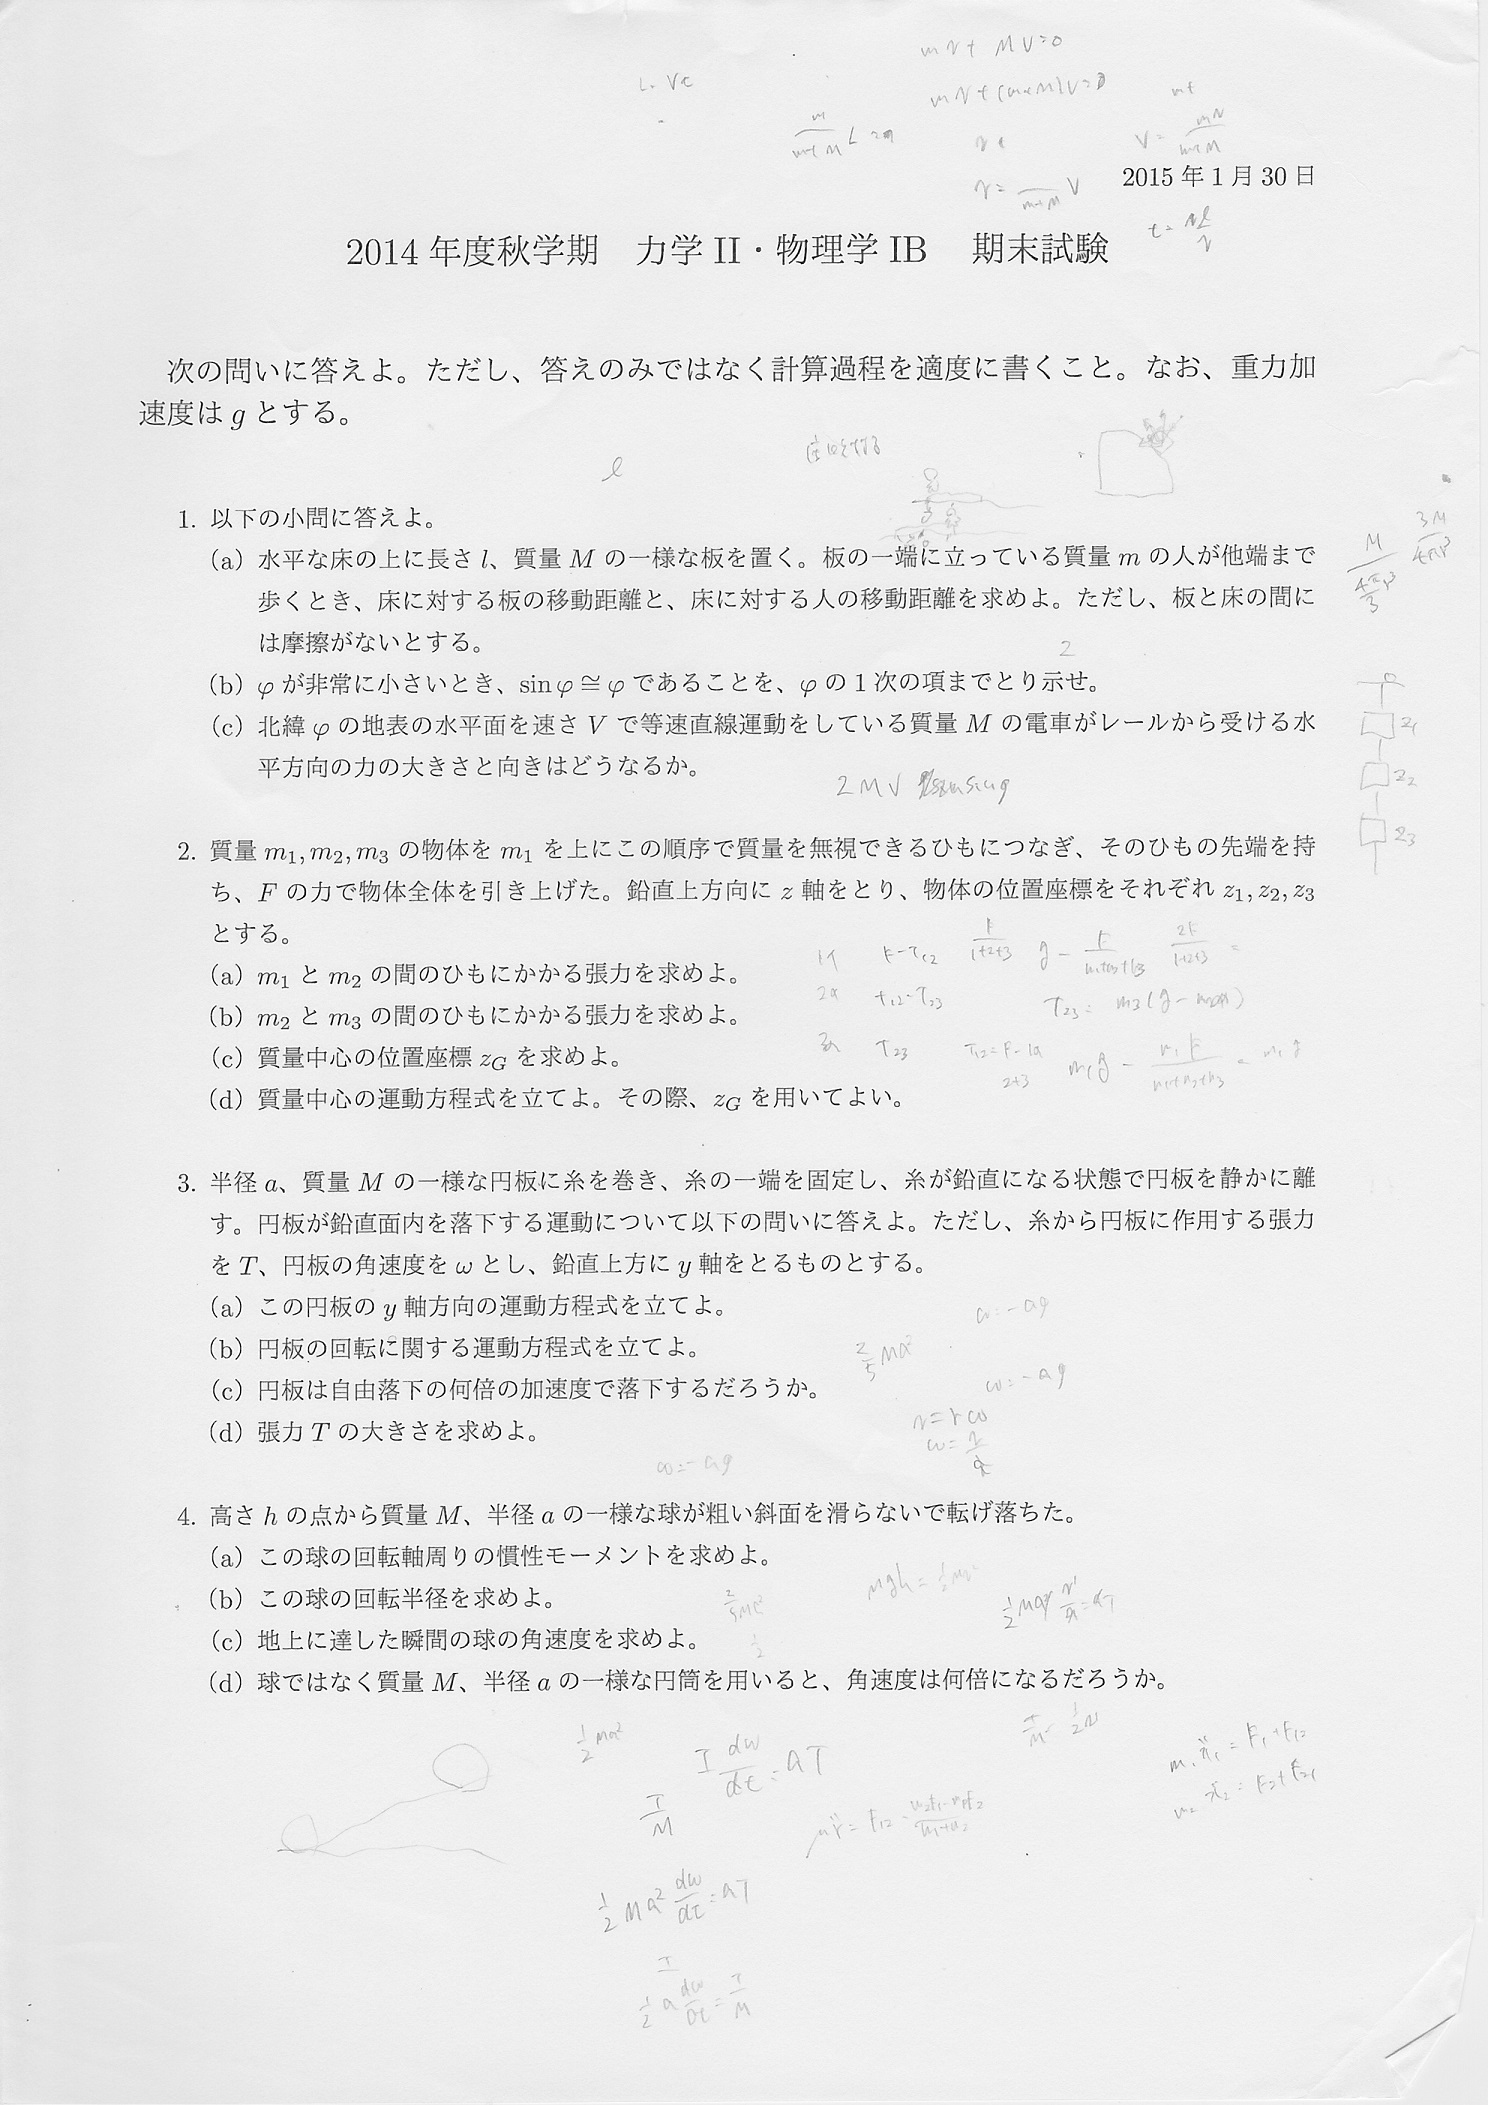 mv + MV=0
L. Vt
2015 年 1 月 30 日
2014 年度秋学期　力学 II・物理学 IB　期末試験
次の問いに答えよ。ただし、答えのみではなく計算過程を適度に書くこと。なお、重力加
速度は g とする。
l
1. 以下の小問に答えよ。
(a) 水平な床の上に長さ l、質量 M の一様な板を置く。板の一端に立っている質量 m の人が他端まで
歩くとき、床に対する板の移動距離と、床に対する人の移動距離を求めよ。ただし、板と床の間に
は摩擦がないとする。
2
(b) φ が非常に小さいとき、sin φ ≅ φ であることを、φ の 1 次の項までとり示せ。
(c) 北緯 φ の地表の水平面を速さ V で等速直線運動をしている質量 M の電車がレールから受ける水
平方向の力の大きさと向きはどうなるか。
z1
z2
z3
2. 質量 m1, m2, m3 の物体を m1 を上にこの順序で質量を無視できるひもにつなぎ、そのひもの先端を持
ち、F の力で物体全体を引き上げた。鉛直上方向に z 軸をとり、物体の位置座標をそれぞれ z1, z2, z3
とする。
(a) m1 と m2 の間のひもにかかる張力を求めよ。
(b) m2 と m3 の間のひもにかかる張力を求めよ。
(c) 質量中心の位置座標 zG を求めよ。
(d) 質量中心の運動方程式を立てよ。その際、zG を用いてよい。
3. 半径 a、質量 M の一様な円板に糸を巻き、糸の一端を固定し、糸が鉛直になる状態で円板を静かに離
す。円板が鉛直面内を落下する運動について以下の問いに答えよ。ただし、糸から円板に作用する張力
を T、円板の角速度を ω とし、鉛直上方に y 軸をとるものとする。
(a) この円板の y 軸方向の運動方程式を立てよ。
(b) 円板の回転に関する運動方程式を立てよ。
(c) 円板は自由落下の何倍の加速度で落下するだろうか。
(d) 張力 T の大きさを求めよ。
v = rω
4. 高さ h の点から質量 M、半径 a の一様な球が粗い斜面を滑らないで転げ落ちた。
(a) この球の回転軸周りの慣性モーメントを求めよ。
(b) この球の回転半径を求めよ。
(c) 地上に達した瞬間の球の角速度を求めよ。
(d) 球ではなく質量 M、半径 a の一様な円筒を用いると、角速度は何倍になるだろうか。
1/2 Ma²
I dω/dt = aT
T/M
1/2 Ma² dω/dt = aT
1/2 a dω/dt = T/M